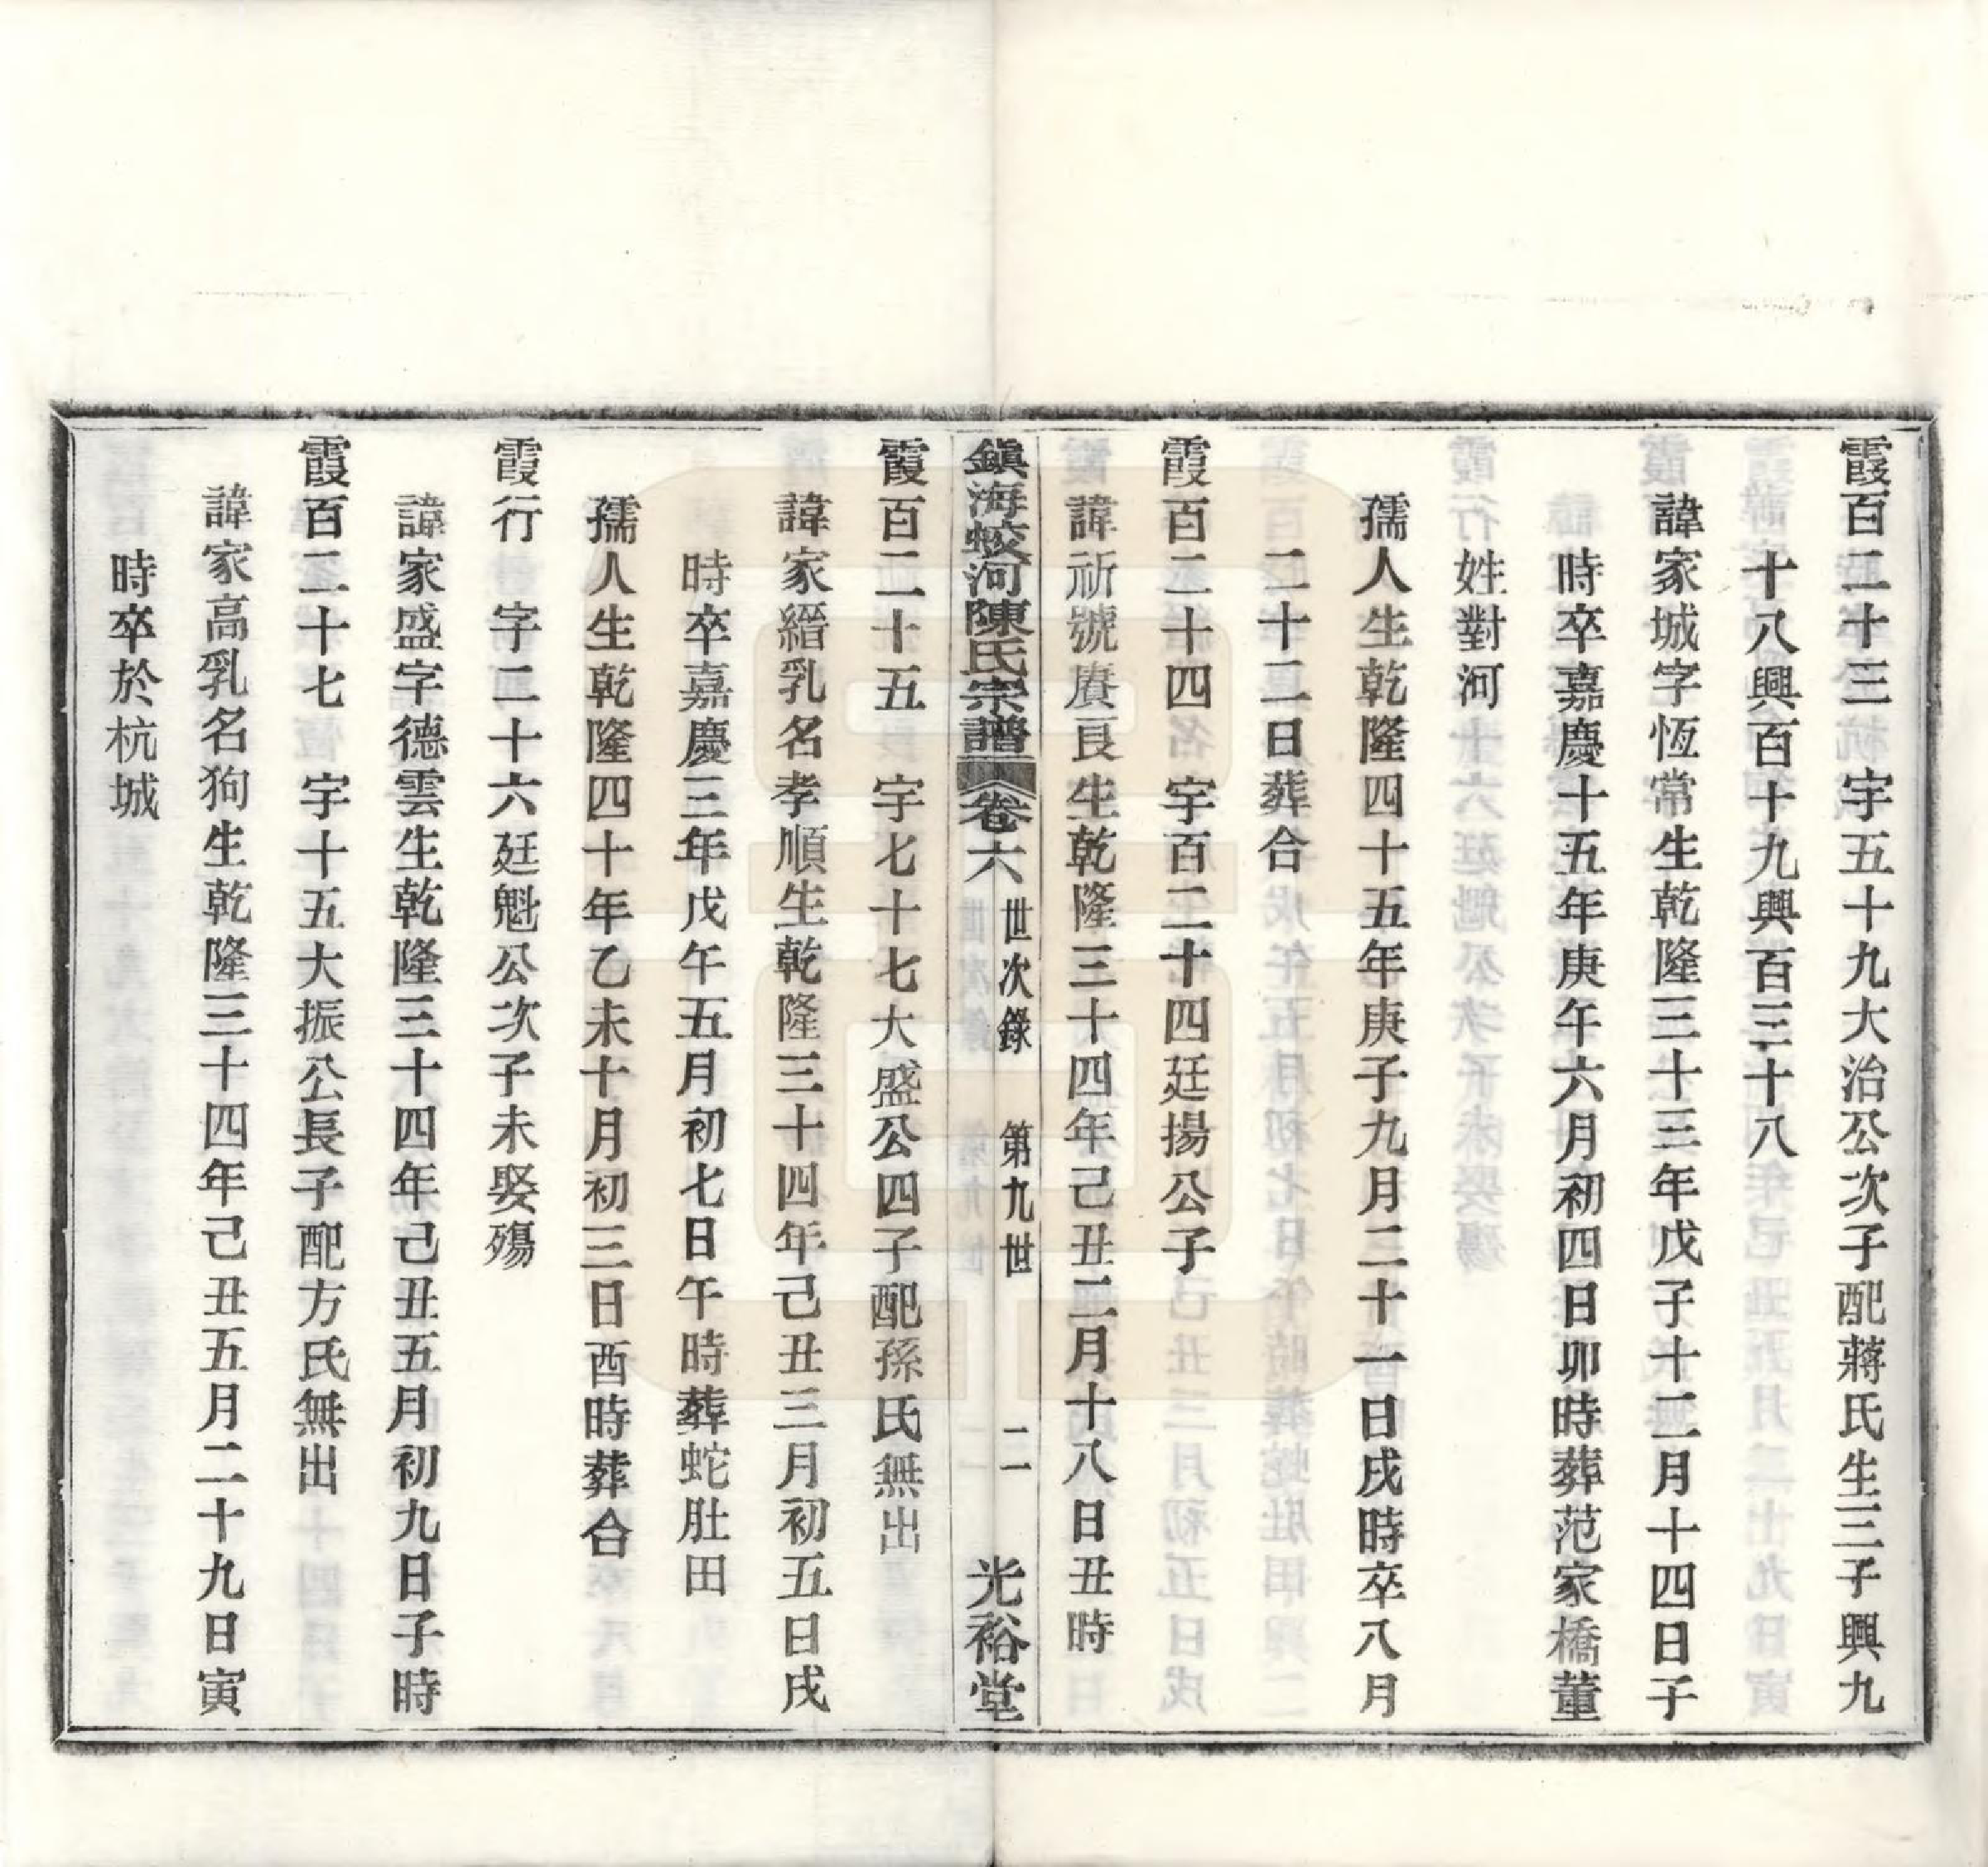 霞百二十三　宇五十九大治公次子配蔣氏生三子興九
十八興百十九興百三十八
諱家城字恆常生乾隆三十三年戊子十二月十四日子
時卒嘉慶十五年庚午六月初四日卯時葬范家橋董
姓對河
孺人生乾隆四十五年庚子九月二十一日戌時卒八月
二十二日葬合
霞百二十四　宇百二十四廷揚公子
諱祈號賡良生乾隆三十四年己丑二月十八日丑時
鎮海蛟河陳氏宗譜　卷六　世次錄　第九世　二　光裕堂
霞百二十五　宇七十七大盛公四子配孫氏無出
諱家縉乳名孝順生乾隆三十四年己丑三月初五日戌
時卒嘉慶三年戊午五月初七日午時葬蛇肚田
孺人生乾隆四十年乙未十月初三日酉時葬合
霞行　字二十六廷魁公次子未娶殤
諱家盛字德雲生乾隆三十四年己丑五月初九日子時
霞百二十七　宇十五大振公長子配方氏無出
諱家高乳名狗生乾隆三十四年己丑五月二十九日寅
時卒於杭城